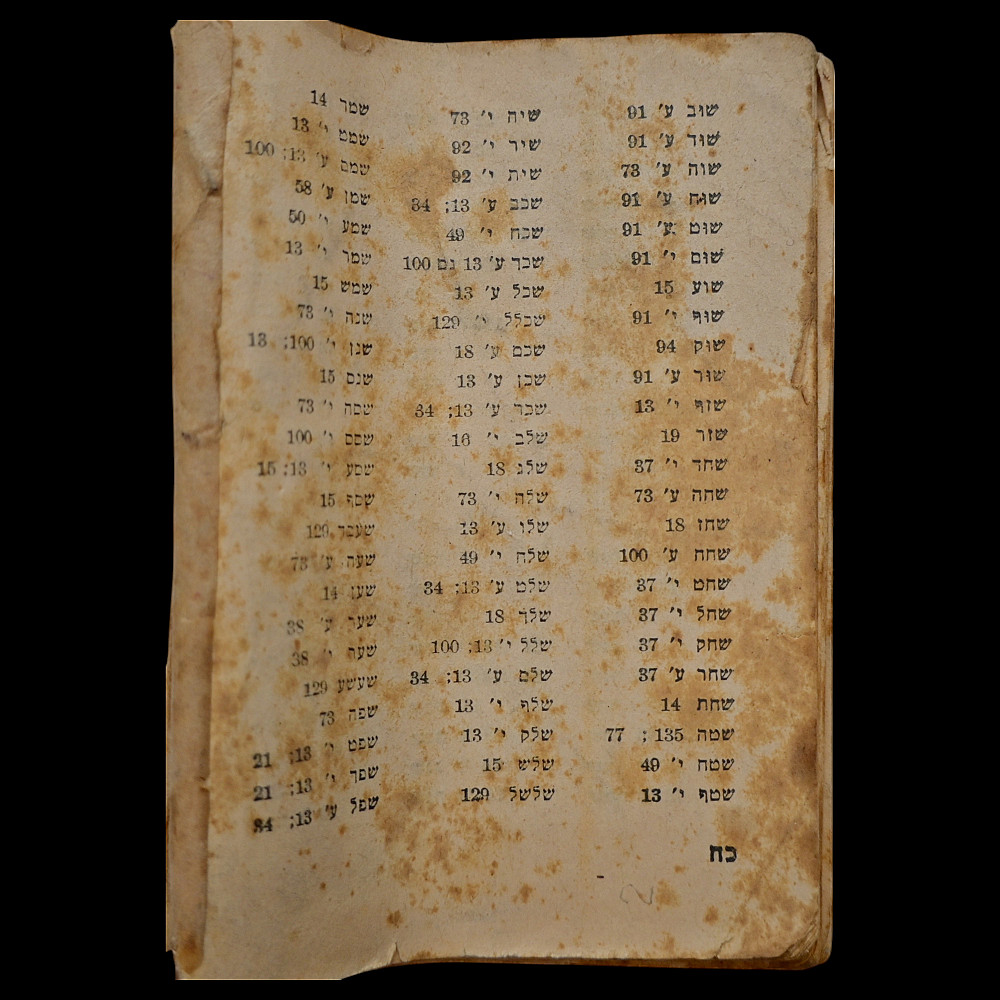 שוב ע׳ 91
שוד ע׳ 91
שוה ע׳ 73
שוח ע׳ 91
שוט ע׳ 91
שום י׳ 91
שוע 15
שוף י׳ 91
שוק 94
שור ע׳ 91
שזף י׳ 13
שזר 19
שחד י׳ 37
שחה ע׳ 73
שחז 18
שחח ע׳ 100
שחט י׳ 37
שחל י׳ 37
שחק י׳ 37
שחר ע׳ 37
שחת 14
שטה 135 ; 77
שטח י׳ 49
שטף י׳ 13
שיח י׳ 73
שיר י׳ 92
שית י׳ 92
שכב ע׳ 13; 34
שכח י׳ 49
שכך ע׳ 13 גם 100
שכל ע׳ 13
שכלל י׳ 129
שכם ע׳ 18
שכן ע׳ 13
שכר ע׳ 13; 34
שלב י׳ 16
שלג 18
שלה י׳ 73
שלו ע׳ 13
שלח י׳ 49
שלט ע׳ 13; 34
שלך 18
שלל י׳ 13; 100
שלם ע׳ 13; 34
שלף י׳ 13
שלק י׳ 13
שלש 15
שלשל 129
שמד 14
שמט י׳ 13
שמם ע׳ 13; 100
שמן ע׳ 58
שמע י׳ 50
שמר י׳ 13
שמש 15
שנה י׳ 73
שנן י׳ 100; 13
שנס 15
שסה י׳ 73
שסס י׳ 100
שסע י׳ 13; 15
שסף 15
שעבד 129
שעה ע׳ 73
שען 14
שער ע׳ 38
שער י׳ 38
שעשע 129
שפה 73
שפט י׳ 13; 21
שפך י׳ 13; 21
שפל ע׳ 13; 34
כח